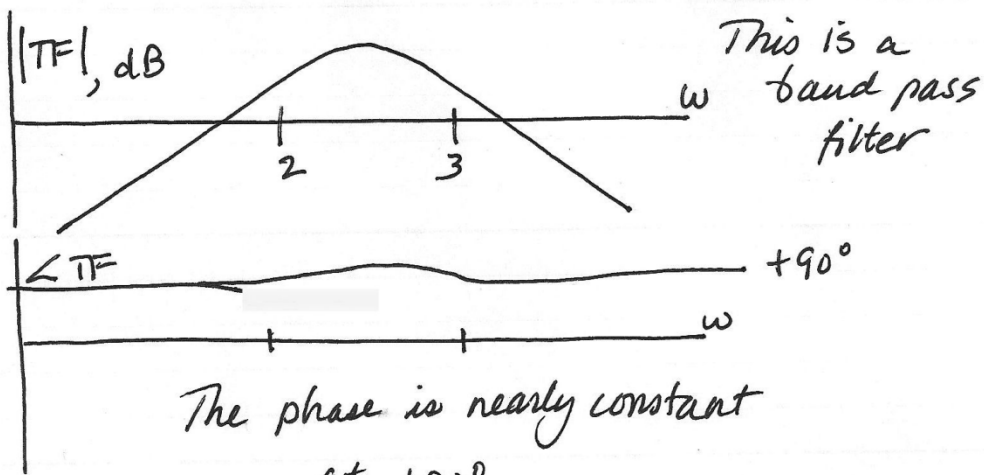 |TF|, dB
This is a
band pass
filter
ω
2 3
∠TF
+90°
ω
The phase is nearly constant